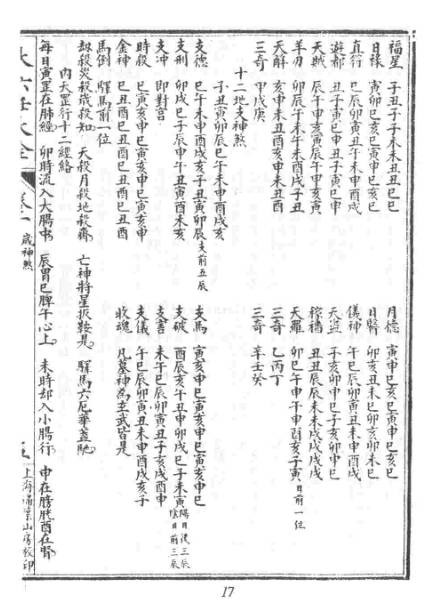 福星 子丑子子未未丑丑巳巳
月德 寅申巳亥寅申巳亥寅申巳亥
日祿 寅卯巳午巳午申酉亥子
直符 巳辰卯寅丑午未申酉戌
儀神 午巳辰卯寅丑未申酉戌
遊都 丑子寅巳申丑子寅巳申
羊刃 卯辰午未午未酉戌子丑
三奇 乙丙丁
三奇 甲戊庚
三奇 辛壬癸
十二地支神煞
子丑寅卯辰巳午未申酉戌亥
支德 巳午未申酉戌亥子丑寅卯辰 支前五辰
支馬 寅亥申巳寅亥申巳寅亥申巳
支刑 卯戌巳子辰申午丑寅酉未亥
支破 酉辰亥午丑申卯戌巳子未寅 陽日後三辰 陰日前三辰
支冲 即對宮
支害 未午巳辰卯寅丑子亥戌酉申
時殺 巳寅亥申巳寅亥申巳寅亥申
支儀 午巳辰卯寅丑未申酉戌亥子
金神 巳丑酉巳丑酉巳丑酉巳丑酉
收魂 凡墓神為玄武皆是
馬倒 驛馬前一位
劫殺災殺歲殺知 天殺月殺地殺齊 亡神將星扳鞍是 驛馬六厄華蓋馳
內天罡行十二經絡
每日寅罡在肺經 卯時流入大腸中 辰胃巳脾午心上 未時却入小腸行 申在膀胱酉在腎
大六壬大全 卷一 歲神煞 上海埽葉山房校印
17